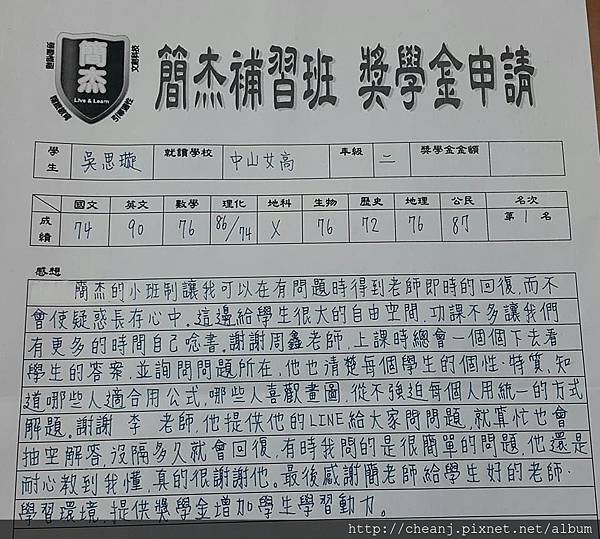 簡杰
Live & Learn
簡杰補習班 獎學金申請
學生 吳思璇 就讀學校 中山女高 年級 二 獎學金金額
國文 英文 數學 理化 地科 生物 歷史 地理 公民 名次
成績 74 90 76 86/74 X 76 72 76 87 第1名
感想
簡杰的小班制讓我可以在有問題時得到老師即時的回復,而不
會使疑惑長存心中。這邊給學生很大的自由空間,功課不多讓我們
有更多的時間自己唸書。謝謝周鑫老師,上課時總會一個個下去看
學生的答案,並詢問問題所在,他也清楚每個學生的個性、特質,知
道哪些人適合用公式,哪些人喜歡畫圖,從不強迫每個人用統一的方式
解題。謝謝 李 老師,他提供他的LINE給大家問問題,就算忙也會
抽空解答,沒隔多久就會回復,有時我問的是很簡單的問題,他還是
耐心教到我懂,真的很謝謝他。最後感謝簡老師給學生好的老師、
學習環境,提供獎學金增加學生學習動力。
http://cheanj.pixnet.net/album